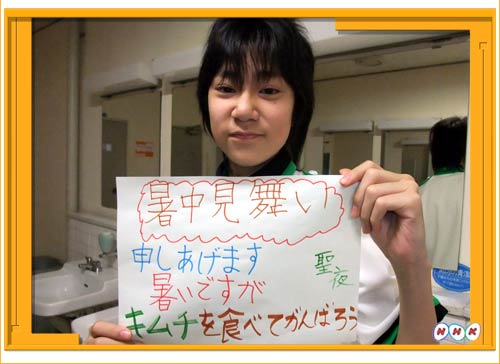 暑中見舞い
申しあげます
聖夜
暑いですが
キムチを食べてがんばろう
NHK